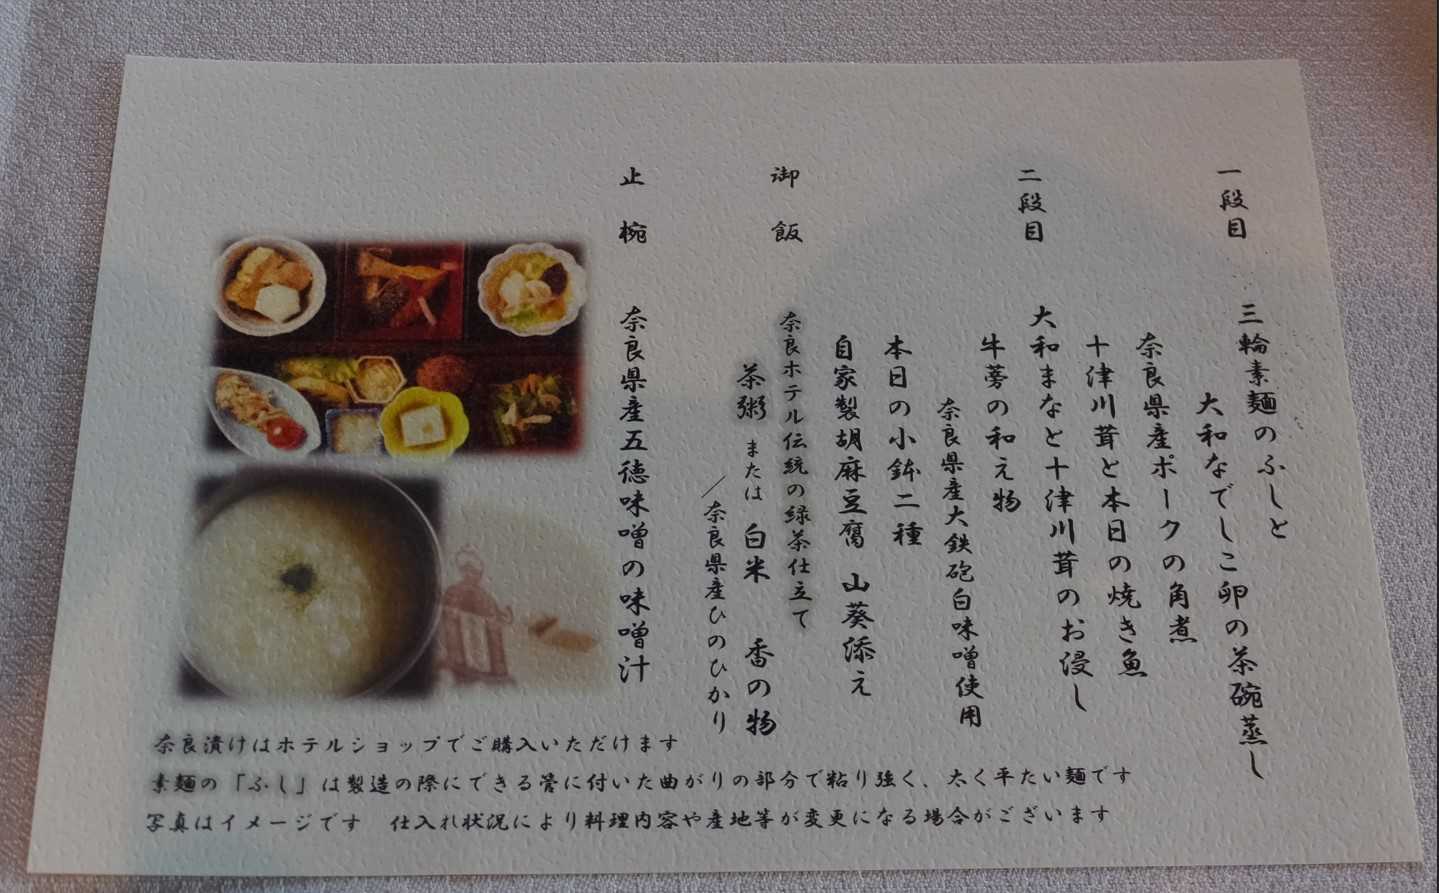 一段目
三輪素麺のふしと
大和なでしこ卵の茶碗蒸し
奈良県産ポークの角煮
十津川茸と本日の焼き魚
二段目
大和まなと十津川茸のお浸し
牛蒡の和え物
奈良県産大鉄砲白味噌使用
本日の小鉢二種
自家製胡麻豆腐 山葵添え
御飯
奈良ホテル伝統の緑茶仕立て
茶粥 または 白米 香の物
／奈良県産ひのひかり
止椀
奈良県産五徳味噌の味噌汁
奈良漬けはホテルショップでご購入いただけます
素麺の「ふし」は製造の際にできる管に付いた曲がりの部分で粘り強く、太く平たい麺です
写真はイメージです 仕入れ状況により料理内容や産地等が変更になる場合がございます